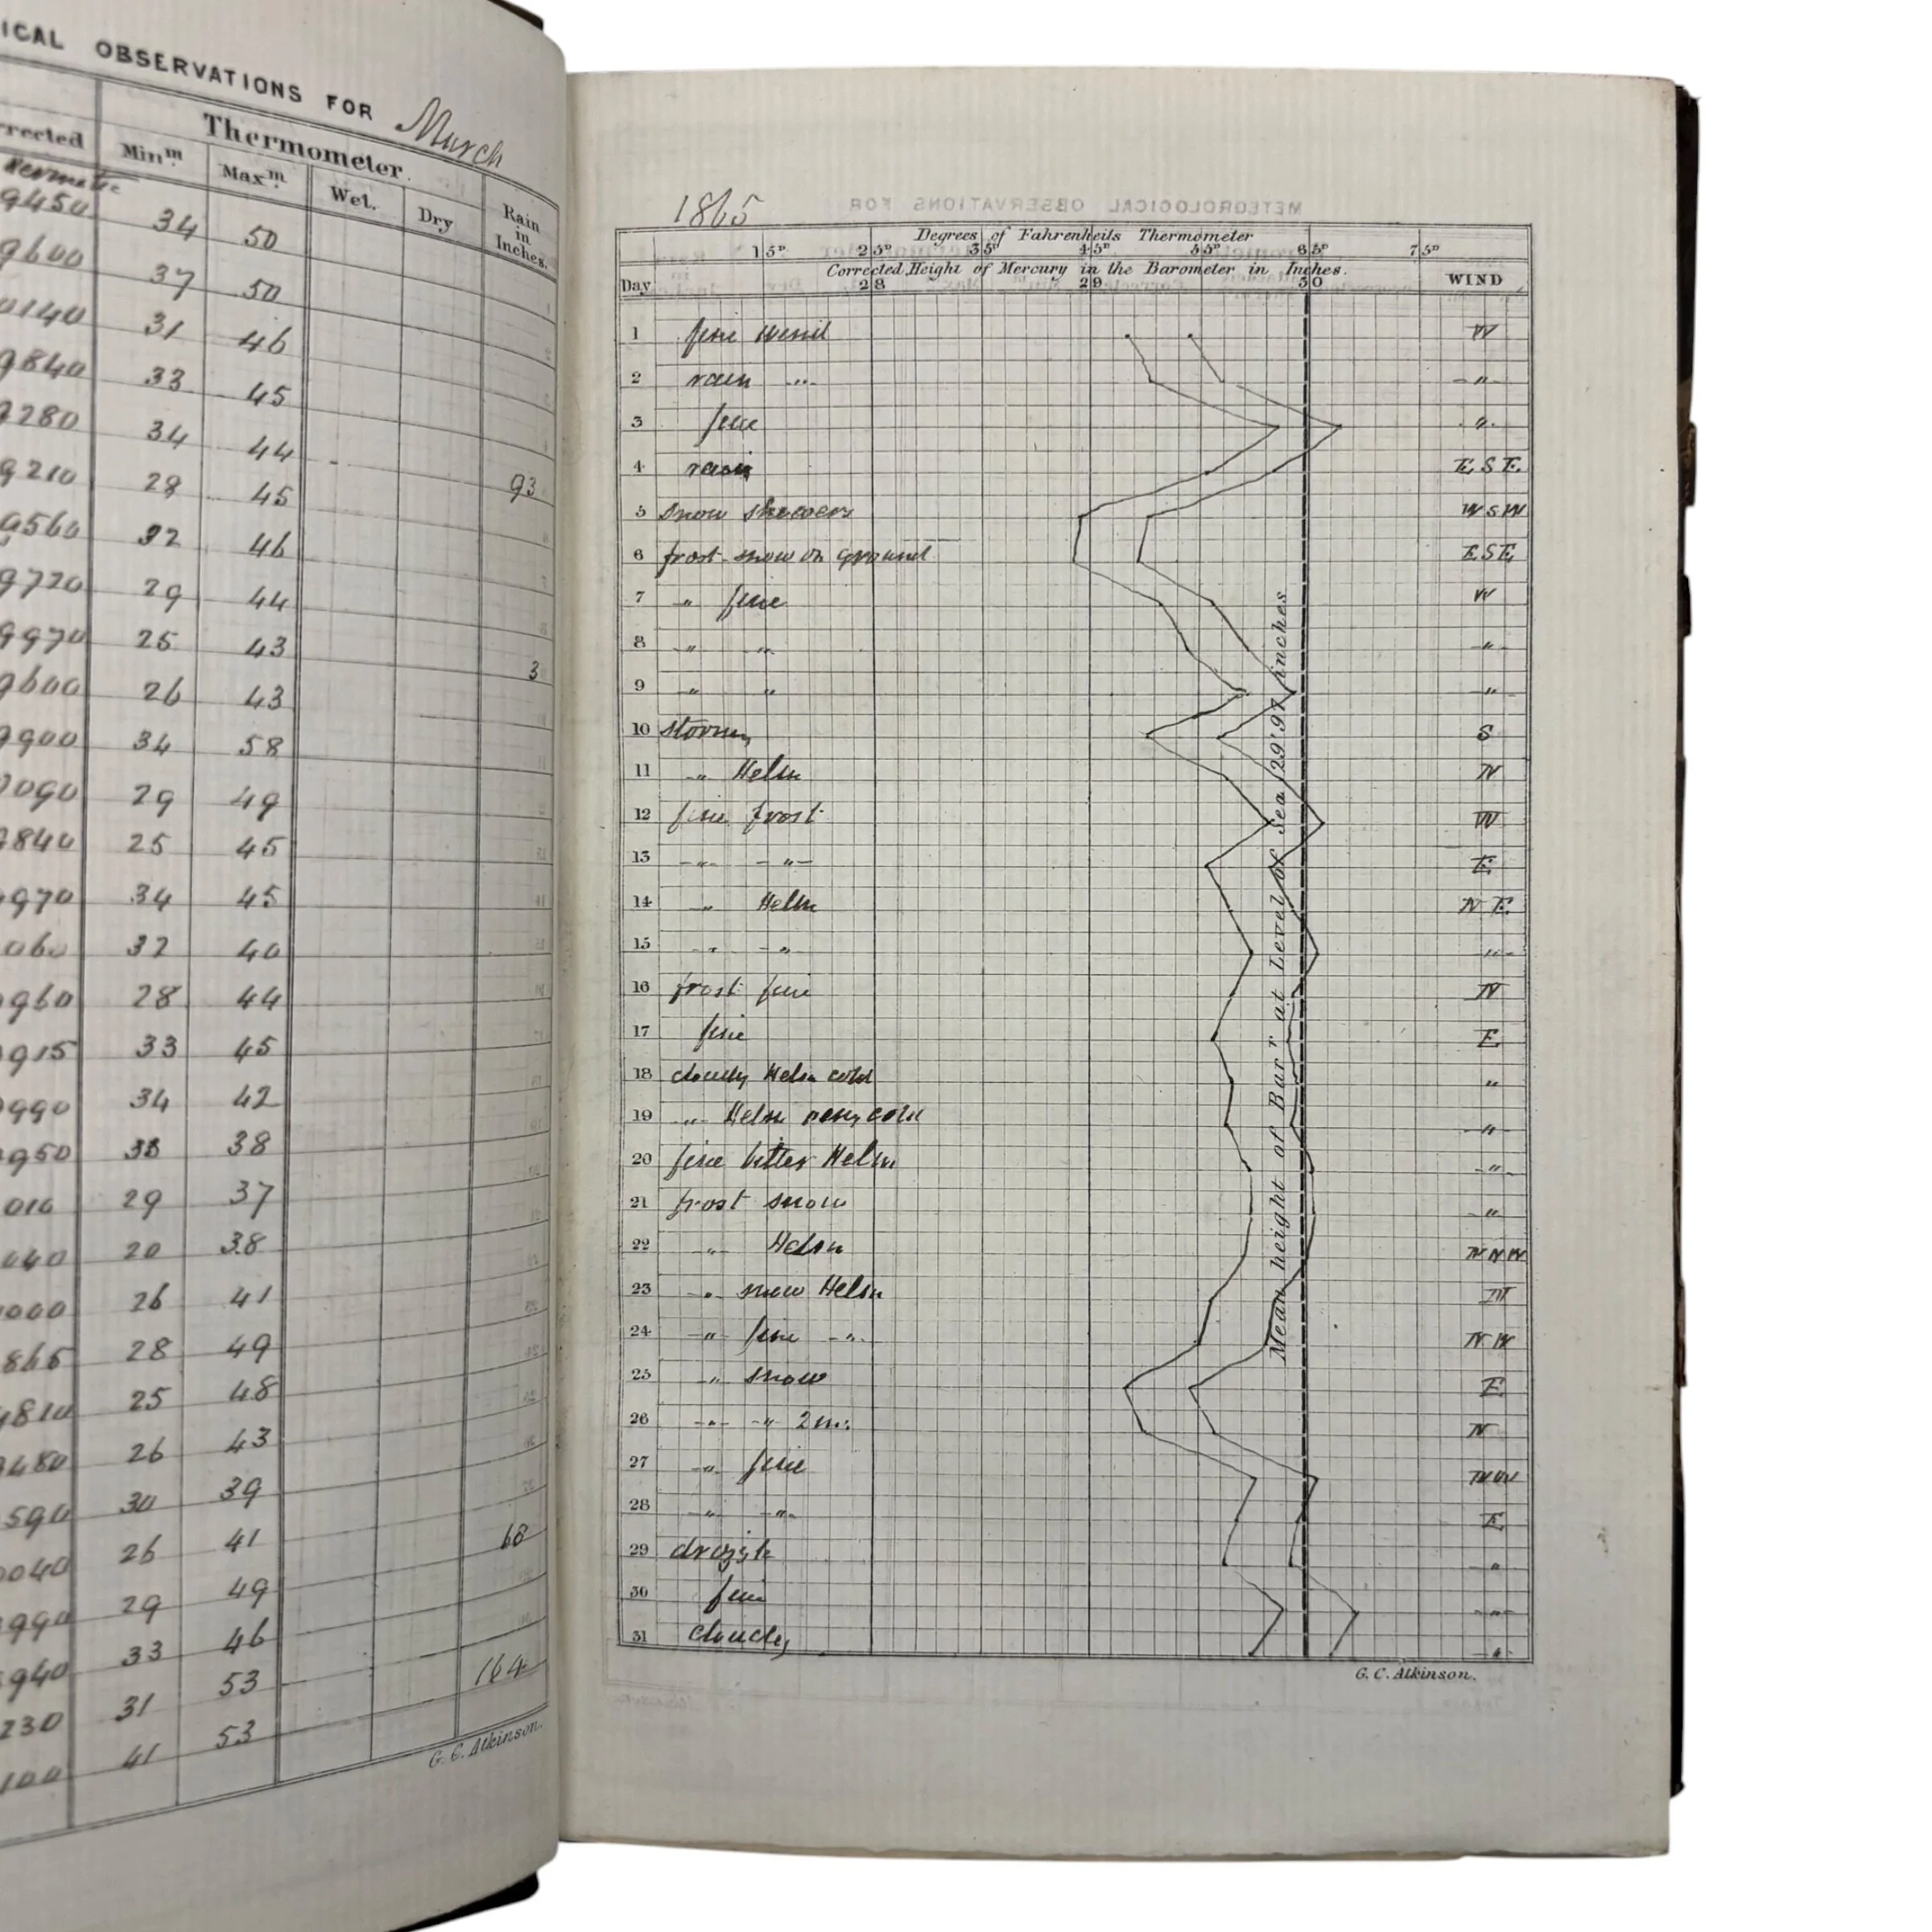 ICAL OBSERVATIONS FOR March
rrected Thermometer. Rain in Inches.
Minm Maxm Wet. Dry
9450 34 50
9600 37 50
0140 31 46
9840 33 45
9280 34 44
9210 28 45 93
9560 32 46
9720 29 44
9970 25 43
9600 26 43 3
9900 34 58
0090 29 49
9840 25 45
9970 34 45
060 32 40
9960 28 44
9915 33 45
9990 34 42
9950 38
010 29 37
040 20 38
000 26 41
865 28 49
9810 25 48
9480 26 43
9590 30 39
0040 26 41 68
9990 29 49
9940 33 46
230 31 53 164
100 41 53
G. C. Atkinson.
1865
METEOROLOGICAL OBSERVATIONS FOR
Degrees of Fahrenheits Thermometer
15D 25D 35D 45D 55D 65D 75D
Corrected Height of Mercury in the Barometer in Inches.
Day 28 29 30 WIND
1 fine W
2 rain -"- -"-
3 fine "
4 rain E S E
5 snow showers W S W
6 frost - snow on ground E S E
7 " fine W
8 " " "
9 " " "
10 storm S
11 " Helm N
12 fine frost W
13 " " E
14 " Helm N E
15 " " "
16 frost fine N
17 fine E
18 cloudy Helm cold "
19 " Helm very cold "
20 fine bitter Helm "
21 frost snow "
22 " Helm N N W
23 " snow Helm
24 " fine " N W
25 " snow E
26 " " 2 in: N
27 " fine N W
28 " " E
29 drizzle "
30 fine "
31 cloudy "
Mean height of Barr at Level of Sea 29'97 inches
G. C. Atkinson.